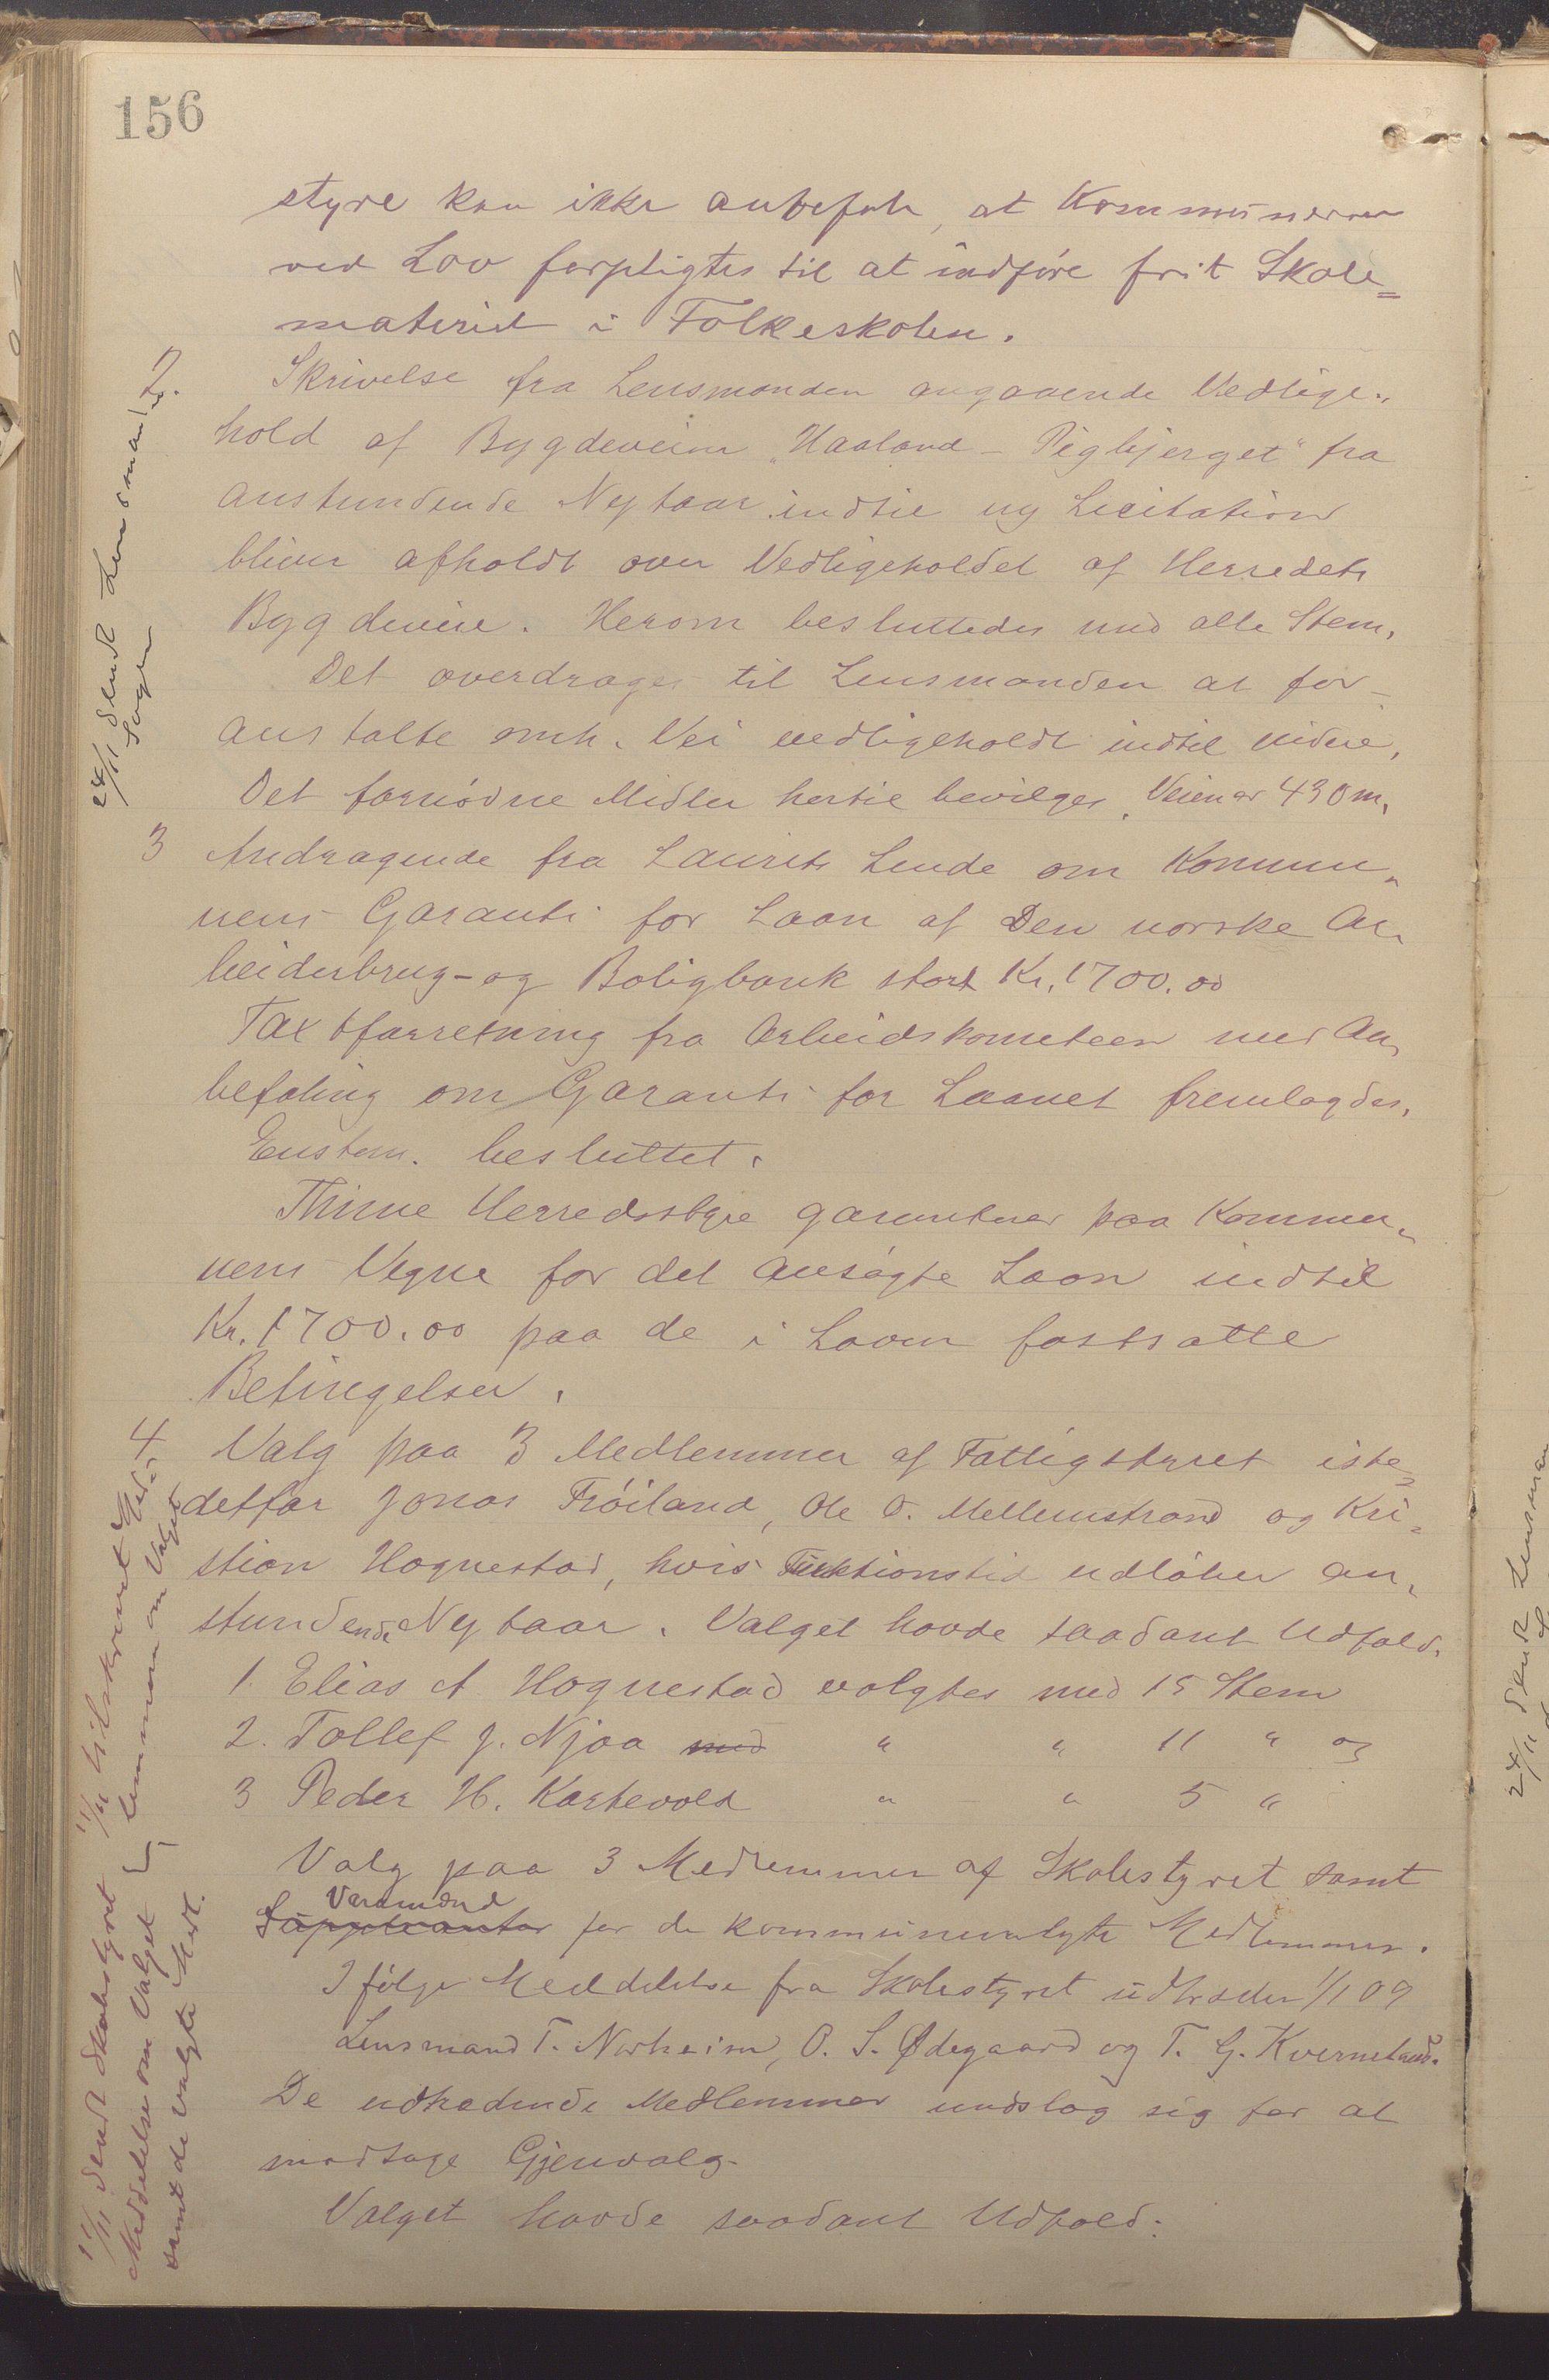 156
styre kan ikke anbefale, at Kommunerne
ved Lov forpligtes til at indføre frit Skole=
materiel i Folkeskolen.
2.
Skrivelse fra Lensmanden angaaende Vedlige-
hold af Bygdeveien "Haaland - Pigbjerget" fra
anstundende Nytaar indtil ny Licitation
bliver afholdt over Vedligeholdet af Herredets
Bygdeveie. Herom besluttedes med alle Stem.
Det overdrages til Lensmanden at for-
anstalte omh. Vei vedligeholdt indtil videre.
Det fornødne Midler hertil bevilges. Veien er 430 m.
24/11 sendt Lensmand
Sagen
3 Andragende fra Laurits Lende om Kommu-
nens Garanti for Laan af Den norske Ar-
beiderbrug- og Boligbank stort Kr. 1700.00
Taxtforretning fra Arbeidskometeen med An-
befaling om Garanti for Laanet fremlagdes.
Enstem. besluttet.
Thime Herredsstyre garanterer paa Kommu-
nens Vegne for det ansøgte Laan indtil
Kr. 1700.00 paa de i Loven fastsatte
Betingelser.
4 Valg paa 3 Medlemmer af Fattigstyret iste=
detfor Jonas Frøiland, Ole O. Mellemstrand og Kri-
stian Hognestad, hvis Funktionstid udløber an-
stundende Nytaar. Valget havde saadant Udfald.
1. Elias A. Hognestad valgtes med 15 Stem
2. Tollef J. Njaa med " " 11 " og
3 Peder H. Kartevold " " 5 "
Valg paa 3 Medlemmer af Skolestyret samt
Varamænd
Suppleanter for de kommunevalgte Medlemmer.
Ifølge Meddelelse fra Skolestyret udtræder 1/1 09
Lensmand T. Norheim, O. S. Ødegaard og T. G. Kverneland.
De udtrædende Medlemmer undslog sig for at
modtage Gjenvalg.
Valget havde saadant Udfald:
11/11 tilskrevet
lemmerne om Valget
11/11 sendt Skolestyret
Meddelelse om Valget
samt de valgte Medl.
24/11 sendt Lensman